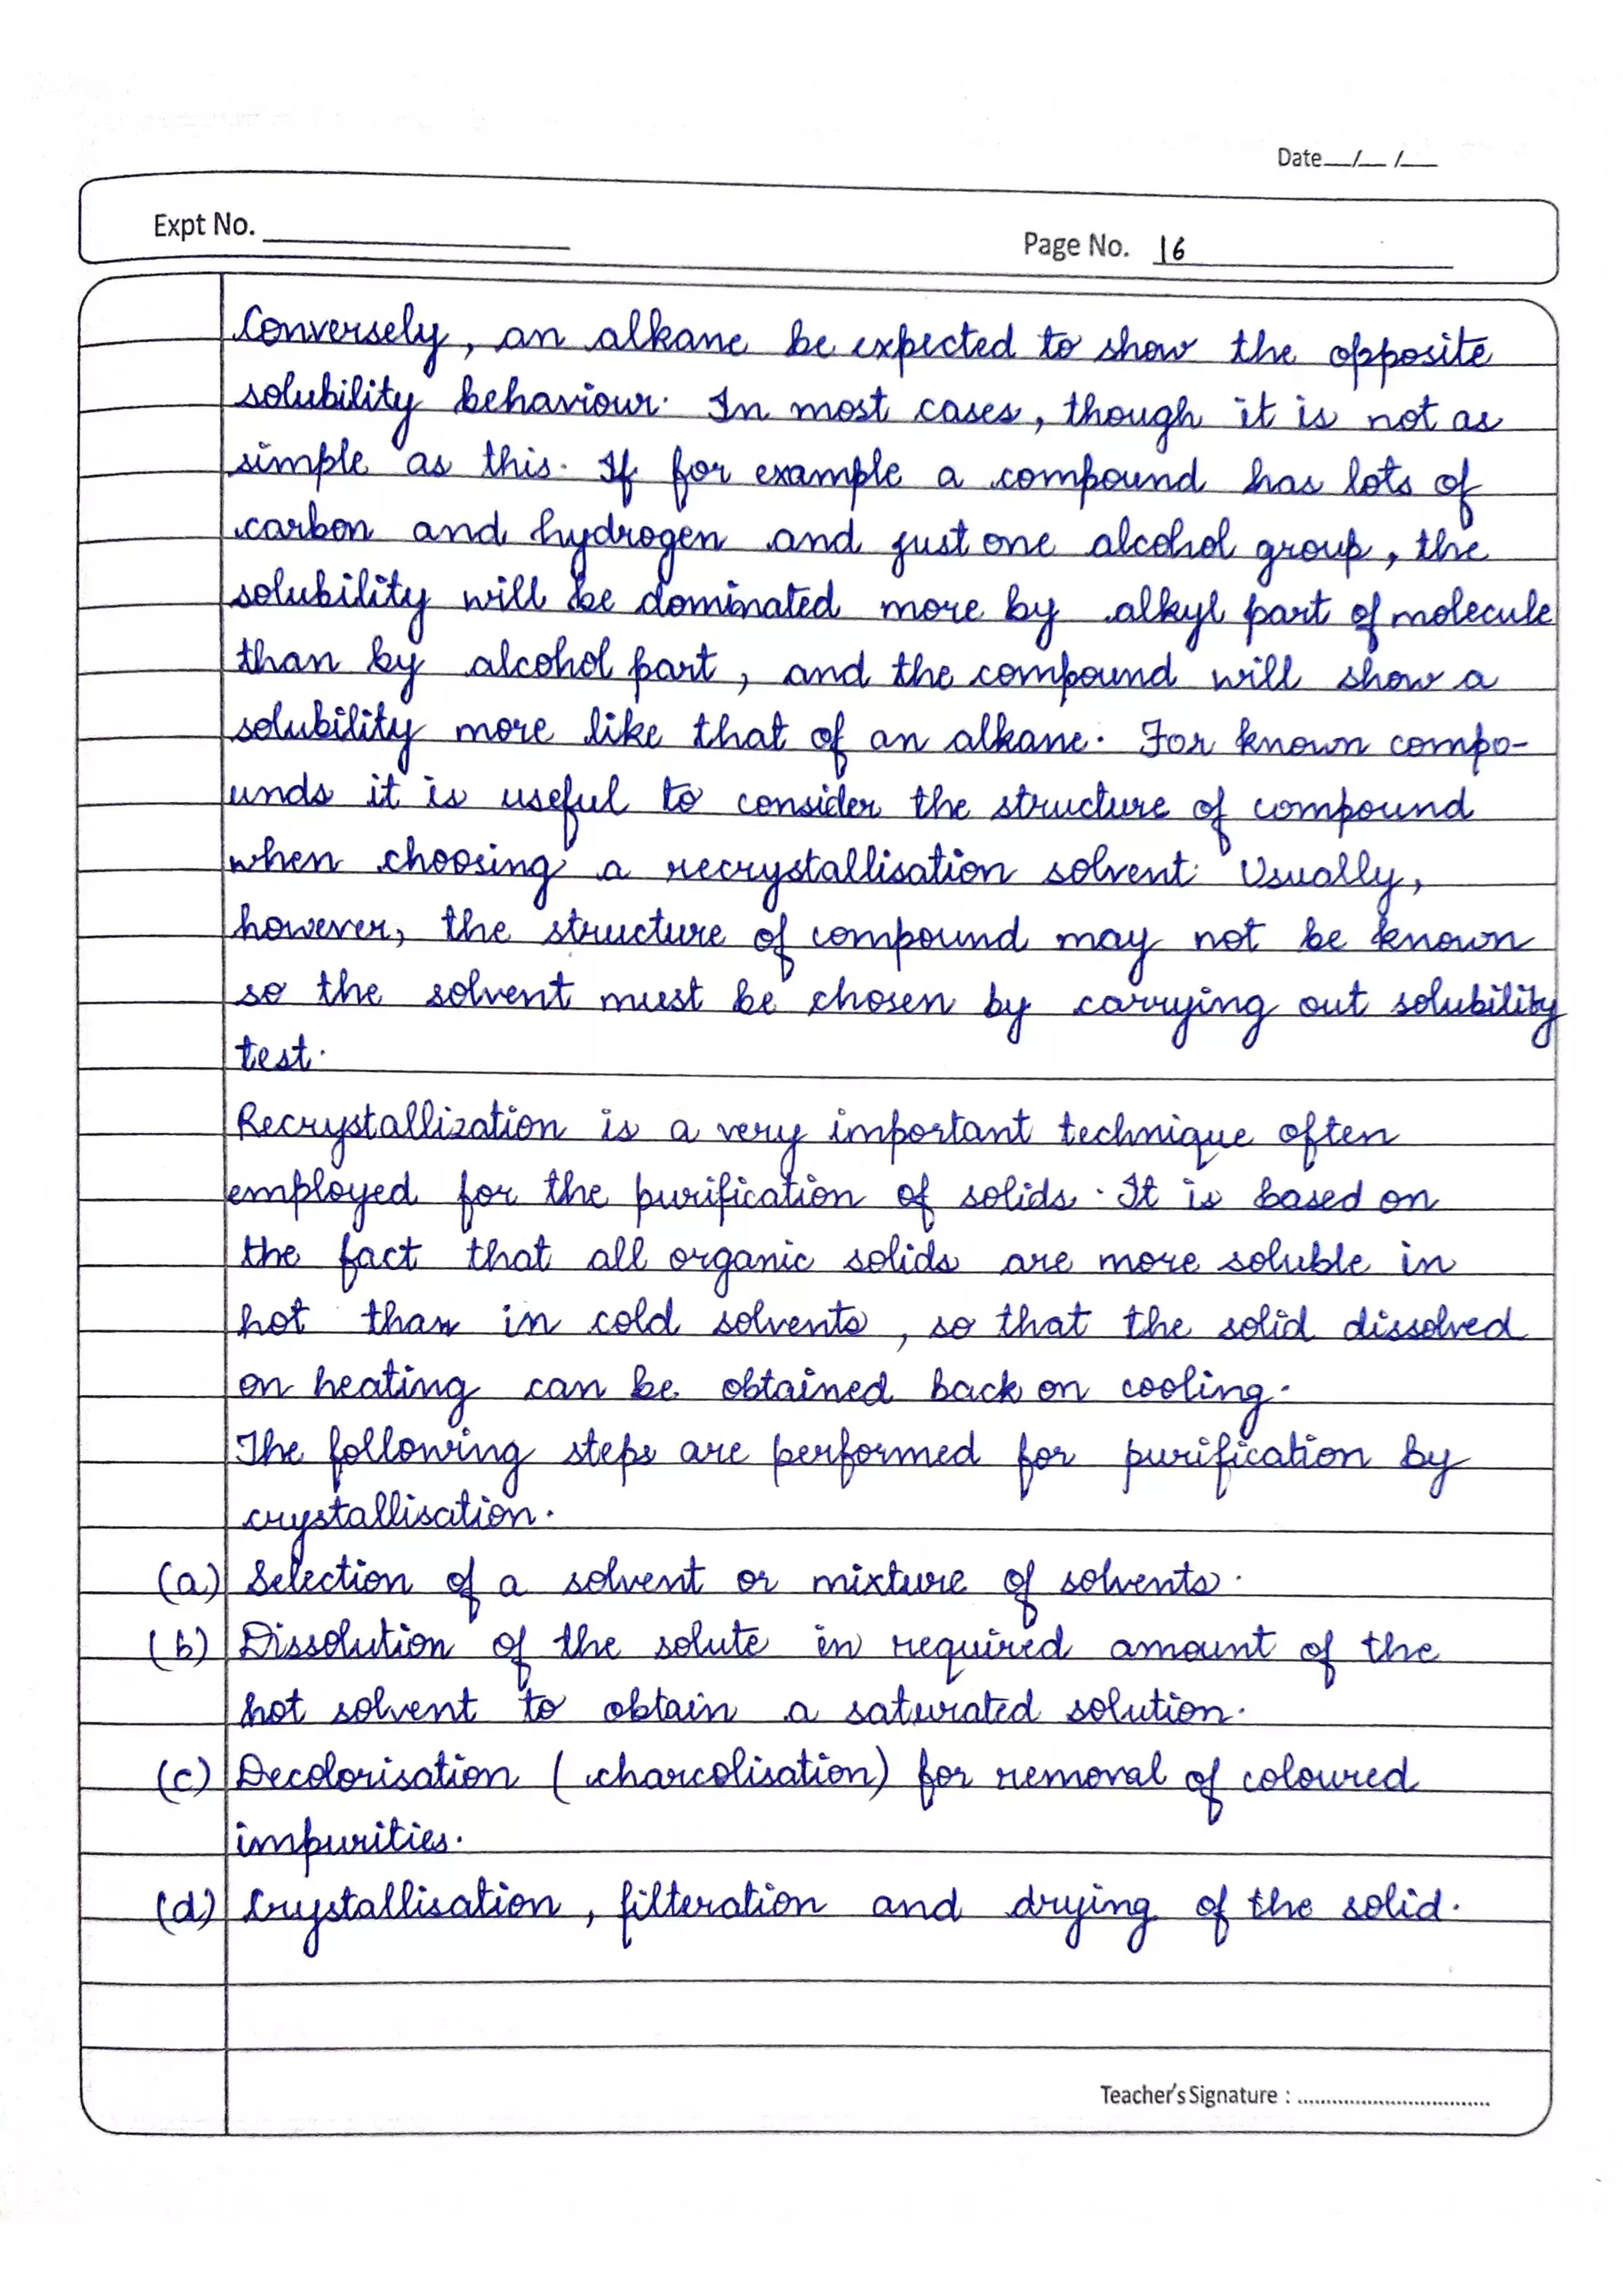 Date__/__/__
Expt No.
Page No. 16
Conversely, an alkane be expected to show the opposite
solubility behaviour. In most cases, though it is not as
simple as this. If for example a compound has lots of
carbon and hydrogen and just one alcohol group, the
solubility will be dominated more by alkyl part of molecule
than by alcohol part, and the compound will show a
solubility more like that of an alkane. For known compo-
unds it is useful to consider the structure of compound
when choosing a recrystallisation solvent. Usually,
however, the structure of compound may not be known
so the solvent must be chosen by carrying out solubility
test.
Recrystallization is a very important technique often
employed for the purification of solids. It is based on
the fact that all organic solids are more soluble in
hot than in cold solvents, so that the solid dissolved
on heating can be obtained back on cooling.
The following steps are performed for purification by
crystallisation.
(a) Selection of a solvent or mixture of solvents.
(b) Dissolution of the solute in required amount of the
hot solvent to obtain a saturated solution.
(c) Decolorisation (charcolisation) for removal of coloured
impurities.
(d) Crystallisation, filteration and drying of the solid.
Teacher's Signature : ................................